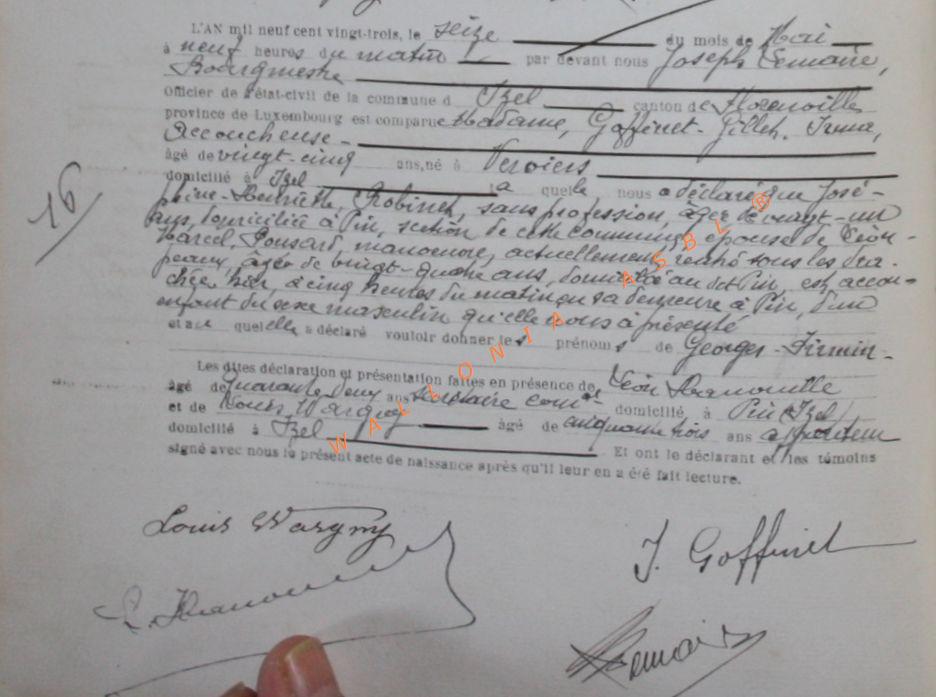 L'AN mil neuf cent vingt-trois, le seize du mois de Mai
à neuf heures du matin par devant nous Joseph Lemaire,
Bourgmestre
Officier de l'état-civil de la commune d Izel canton de
province de Luxembourg est comparue Madame, Goffinet-Gillet. Irma,
Accoucheuse-
âgé de vingt-cinq ans, né à Verviers
domicilié à Izel a quelle nous a déclaré que José-
phine-Henriette, Robinet, sans profession, âgée de vingt-un
ans, domiciliée à Pin, section de cette commune, épouse de Léon-
Marcel, Ponsard, manoeuvre, actuellement, rentré sous les dra-
peaux, âgé de vingt-quatre ans, domicilié au dit Pin, est accou-
chée hier, à cinq heures du matin en sa demeure à Pin, d'un
enfant du sexe masculin qu'elle nous a présenté
et au quelle a déclaré vouloir donner les prénoms de Georges-Firmin-
Les dites déclaration et présentation faites en présence de Léon
âgé de quarante deux ans secrétaire comal domicilié à Pin Izel
et de Louis Wargny âgé de cinquante trois ans
domicilié à Izel Et ont le déclarant et les témoins
signé avec nous le présent acte de naissance après qu'il leur en a été fait lecture.
19/
Louis Wargny
J. Goffinet
Lemaire
WALLONIA ASBL ®